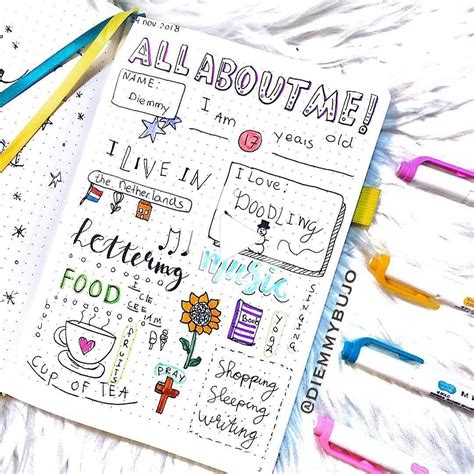 24 NOV 2018
ALL ABOUT ME!
NAME:
Diemmy
I am
17 years old
I LIVE IN
the Netherlands
I Love:
DOODLING
lettering
music
FOOD
ICE
CREAM
FRUITS
CUP OF TEA
PRAY
Book
YOGA
SINGING
Shopping
Sleeping
Writing
@DIEMMYBUJO